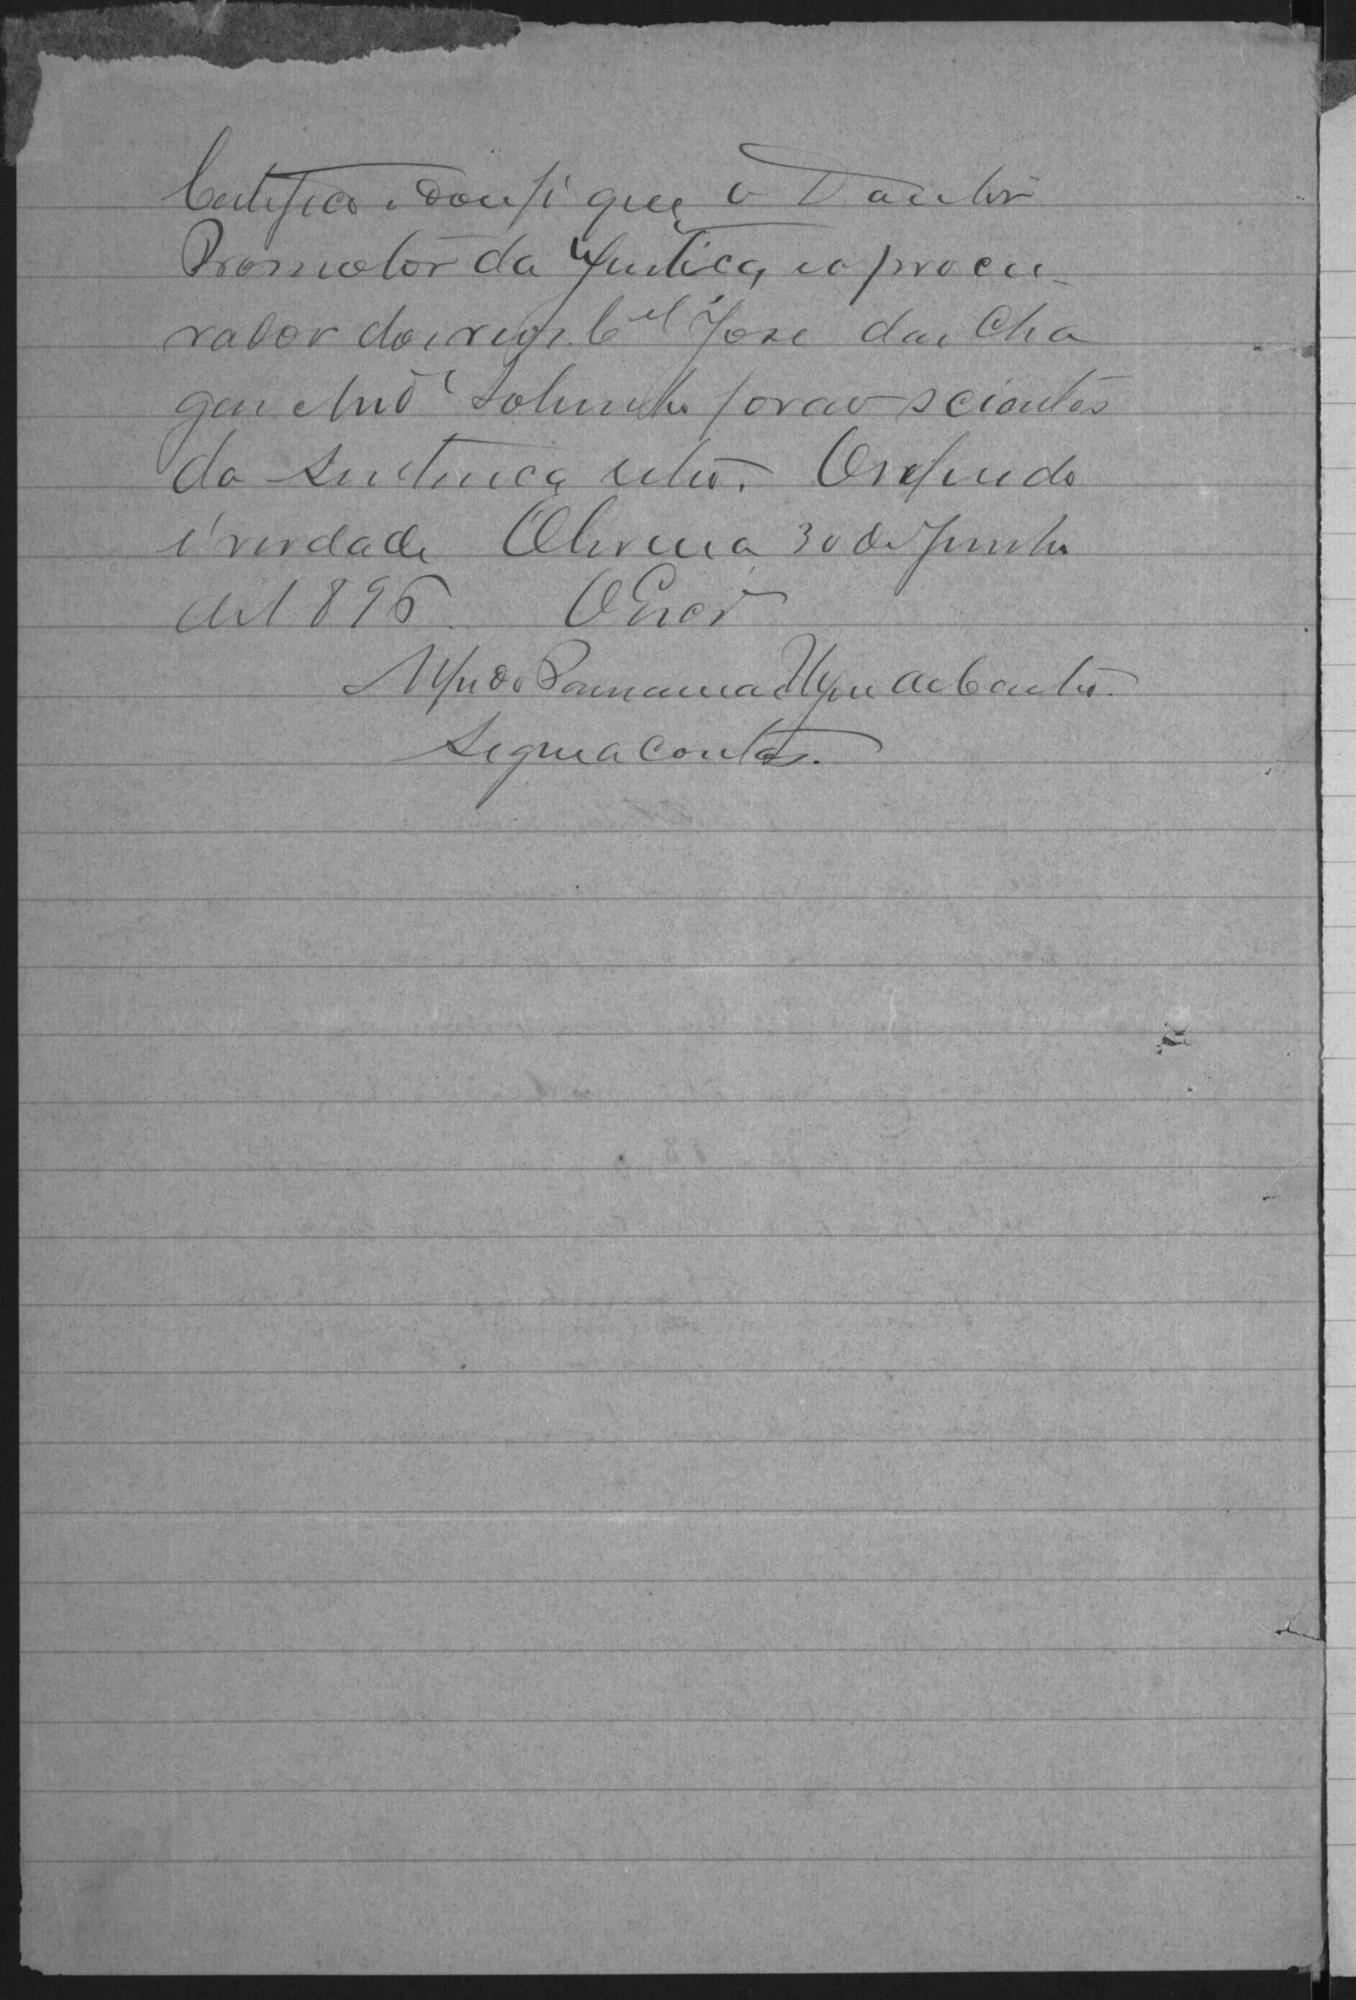 Certifico e dou fé que o Doutor
Promotor da Justiça, e o procu-
rador dos reus C.el José das Cha
gas And.e Sobrinho forão scientes
da sentença retro. O referido
é verdade Oliveira 30 de Junho
de 1896. O Escr.
Alfredo
Segue a conta.